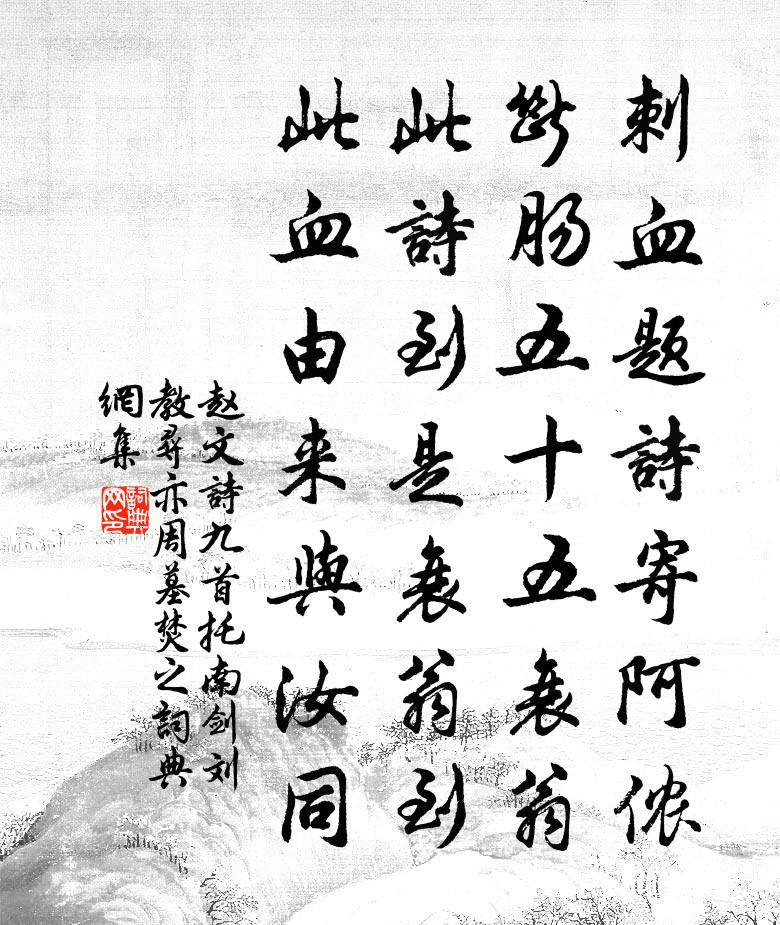 刺血题詩寄阿侬
断肠五十五衰翁
此詩到是衰翁到
此血由来與汝同
赵文詩九首托南剑刘
教尋亦周墓焚之詞典
網集
詞典
网印